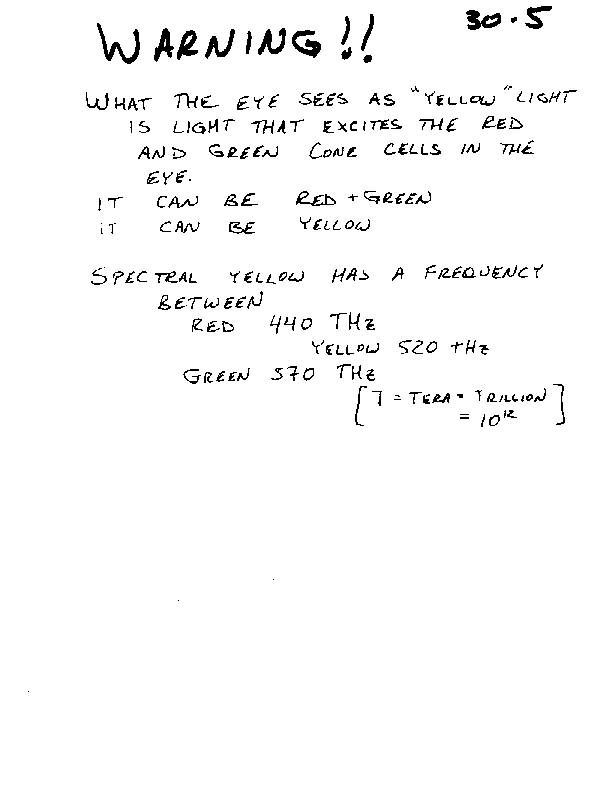 30.5
WARNING!!
WHAT THE EYE SEES AS "YELLOW" LIGHT
IS LIGHT THAT EXCITES THE RED
AND GREEN CONE CELLS IN THE
EYE.
IT CAN BE RED + GREEN
IT CAN BE YELLOW
SPECTRAL YELLOW HAS A FREQUENCY
BETWEEN
RED 440 THz
YELLOW 520 THz
GREEN 570 THz
[T = TERA = TRILLION
= 10¹²]